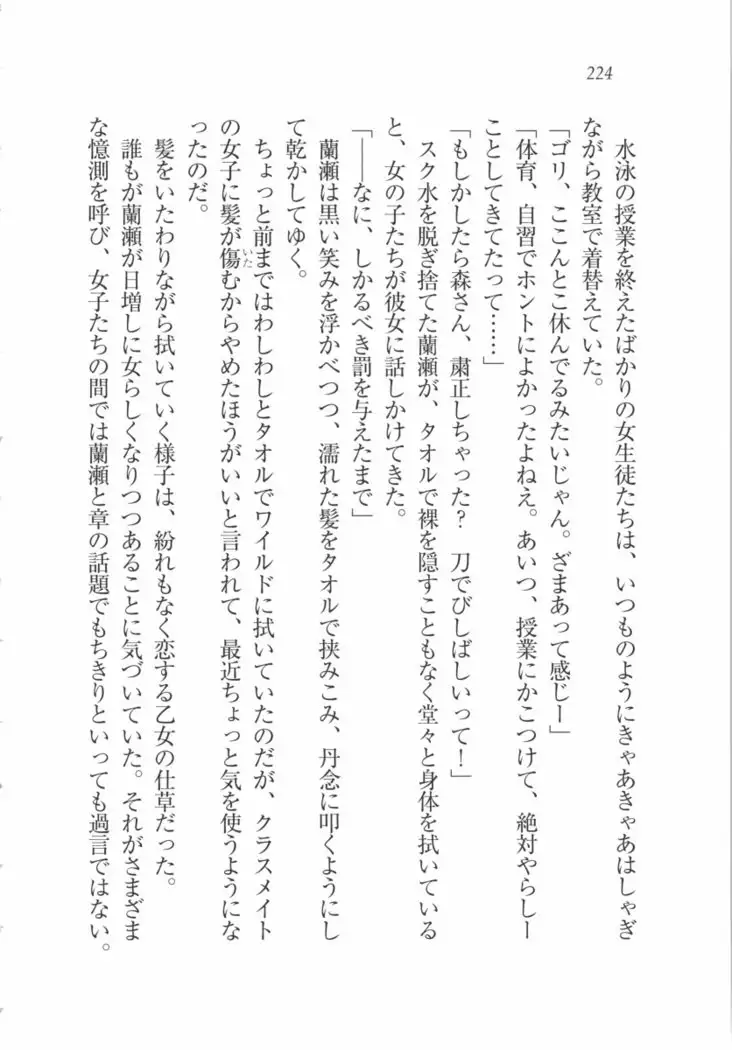 224
水泳の授業を終えたばかりの女生徒たちは、いつものようにきゃあきゃあはしゃぎ
ながら教室で着替えていた。
「ゴリ、ここんとこ休んでるみたいじゃん。ざまあって感じー」
「体育、自習でホントによかったよねえ。あいつ、授業にかこつけて、絶対やらしー
ことしてきてたって……」
「もしかしたら森さん、粛正しちゃった？　刀でびしばしいって！」
スク水を脱ぎ捨てた蘭瀬が、タオルで裸を隠すこともなく堂々と身体を拭いている
と、女の子たちが彼女に話しかけてきた。
「――なに、しかるべき罰を与えたまで」
蘭瀬は黒い笑みを浮かべつつ、濡れた髪をタオルで挟みこみ、丹念に叩くようにし
て乾かしてゆく。
ちょっと前まではわしわしとタオルでワイルドに拭いていたのだが、クラスメイト
の女子に髪が傷いたむからやめたほうがいいと言われて、最近ちょっと気を使うようにな
ったのだ。
髪をいたわりながら拭いていく様子は、紛れもなく恋する乙女の仕草だった。
誰もが蘭瀬が日増しに女らしくなりつつあることに気づいていた。それがさまざま
な憶測を呼び、女子たちの間では蘭瀬と章の話題でもちきりといっても過言ではない。